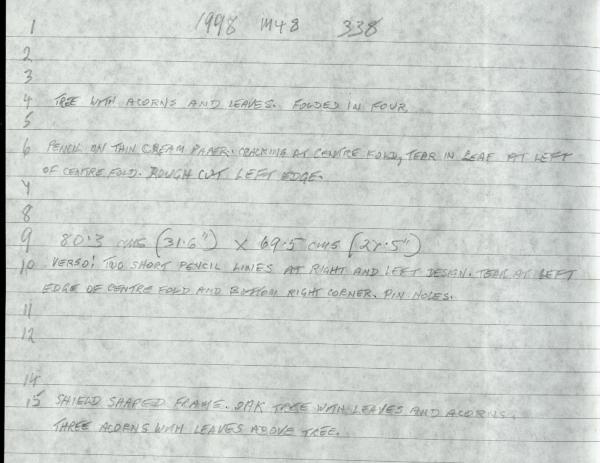 1 1998 M48 338
2
3
4 TREE WITH ACORNS AND LEAVES. FOLDED IN FOUR
5
6 PENCIL ON THIN CREAM PAPER. CRACKING AT CENTRE FOLD, TEAR IN LEAF AT LEFT
OF CENTRE FOLD. ROUGH CUT LEFT EDGE.
7
8
9 80.3 cms (31.6") X 69.5 cms (27.5")
10 VERSO: TWO SHORT PENCIL LINES AT RIGHT AND LEFT DESIGN. TEAR AT LEFT
EDGE OF CENTRE FOLD AND BOTTOM RIGHT CORNER. PIN HOLES.
11
12
14
15 SHIELD SHAPED FRAME. OAK TREE WITH LEAVES AND ACORNS.
THREE ACORNS WITH LEAVES ABOVE TREE.